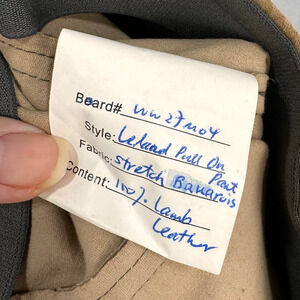 Board# WW27M04
Style: Leland Pull On Pant
Fabric: Stretch
Content: 100% Lamb
Leather